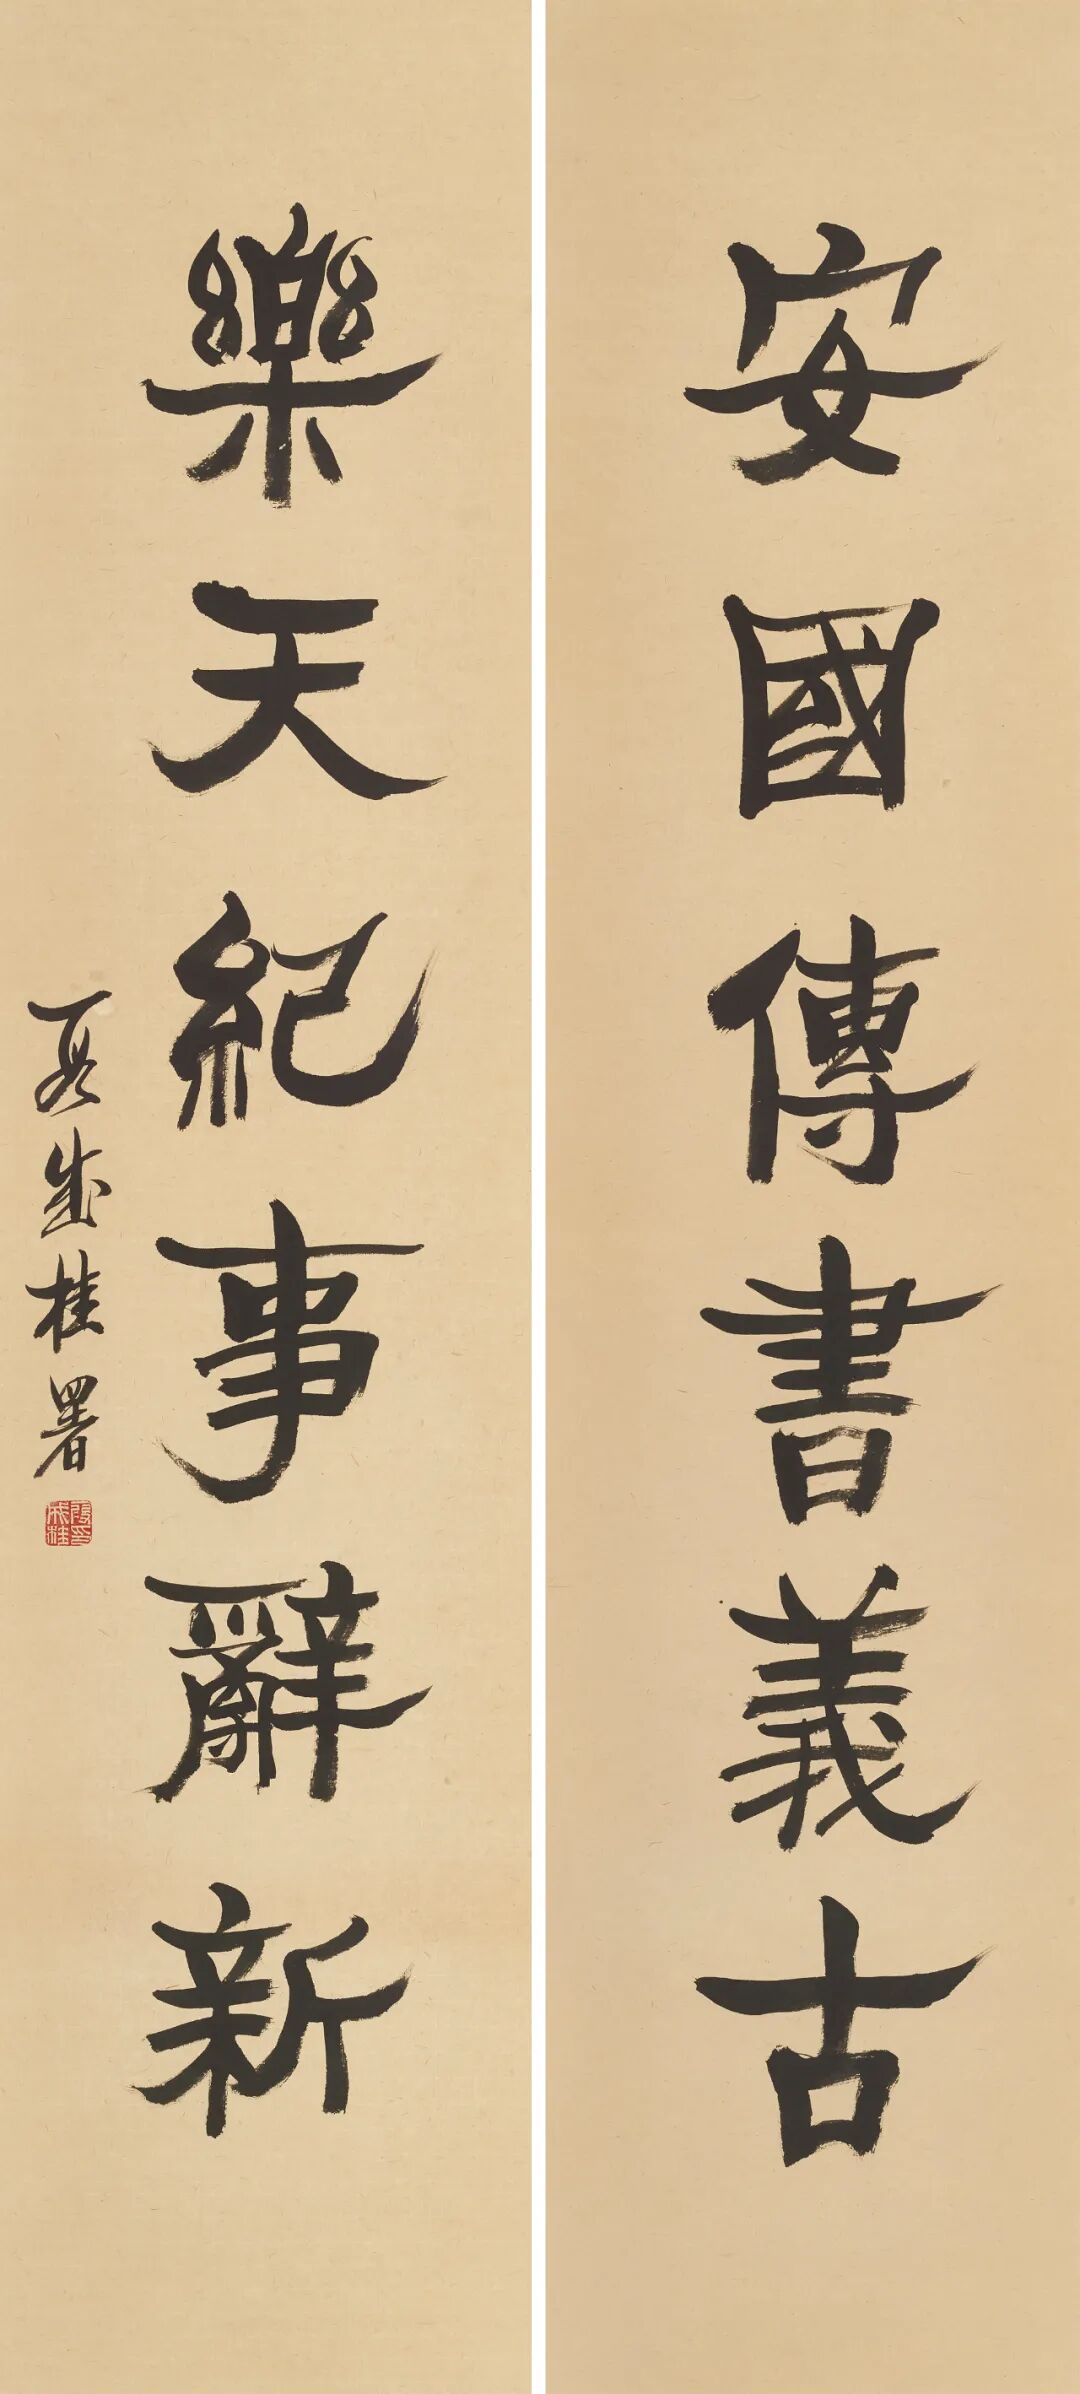 安國傳書義古
樂天紀事辭新
成桂署